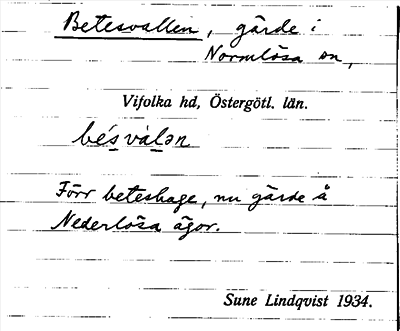 Betesvallen, gärde i
Normlösa sn,
Vifolka hd, Östergötl. län.
bésvàlən
Förr beteshage, nu gärde å
Nederlösa ägor.
Sune Lindqvist 1934.